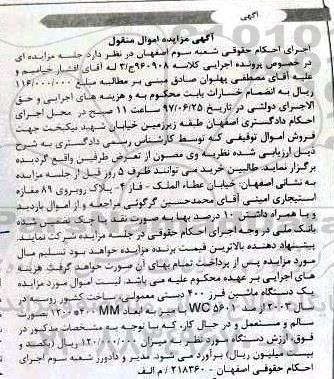 آگهی
آگهی مزایده اموال منقول
اجرای احکام حقوقی شعبه سوم اصفهان در نظر دارد جلسه مزایده ای
در خصوص پرونده اجرایی کلاسه ۹۶۰۹۰۸ج/۳ له آقای افشار خیامیم و
علیه آقای مصطفی پهلوان صادق مبنی بر مطالبه مبلغ ۱۱۶/۰۰۰/۰۰۰
ریال به انضمام خسارات بابت محکوم به و هزینه های اجرایی و حق
الاجرای دولتی در تاریخ ۹۷/۰۶/۲۵ ساعت ۱۱ صبح در محل اجرای
احکام دادگستری اصفهان طبقه زیرزمین خیابان شهید نیکبخت جهت
فروش اموال توقیفی که توسط کارشناس رسمی دادگستری به شرح
ذیل ارزیابی شده نظریه وی مصون از تعرض طرفین واقع گردیده
برگزار نماید. طالبین خرید می توانند ظرف ۵ روز قبل از جلسه مزایده
به نشانی اصفهان: خیابان عطاء الملک - فاز ۴- پلاک روبروی ۸۹ مغازه
استیجاری امینی آقای محمدحسین گرگوئی مراجعه و از اموال بازدید
و با همراه داشتن ۱۰ درصد بها به صورت نقد یا چک تضمین شده
بانک ملی در وجه اجرای احکام حقوقی در جلسه مزایده شرکت نمایند.
پیشنهاد دهنده بالاترین قیمت برنده مزایده خواهد بود تسلیم مال
مورد مزایده پس از پرداخت تمام بهای آن صورت خواهد گرفت. هزینه
های اجرایی بر عهده محکوم علیه می باشد. لیست اموال مورد مزایده
یک دستگاه ماشین فرز ۴۰۰ دستی معمولی ساخت کشور روسیه در
سال ۲۰۰۳ از مدل WC ۵۶۰۰ با میز به ابعاد MM ۱۲۰۰*۴۰۰ بصورت
سالم و مستعمل و در حال کار، که با توجه به مشخصات مذکور در
فوق، ارزش دستگاه مورد نظر به میزان ۱۲۰/۰۰۰/۰۰۰ ریال (یکصد و
بیست میلیون ریال) برآورد می شود. مدیر و دادورز شعبه سوم اجرای
احکام حقوقی اصفهان - ۲۱۸۳۶۰ / م الف